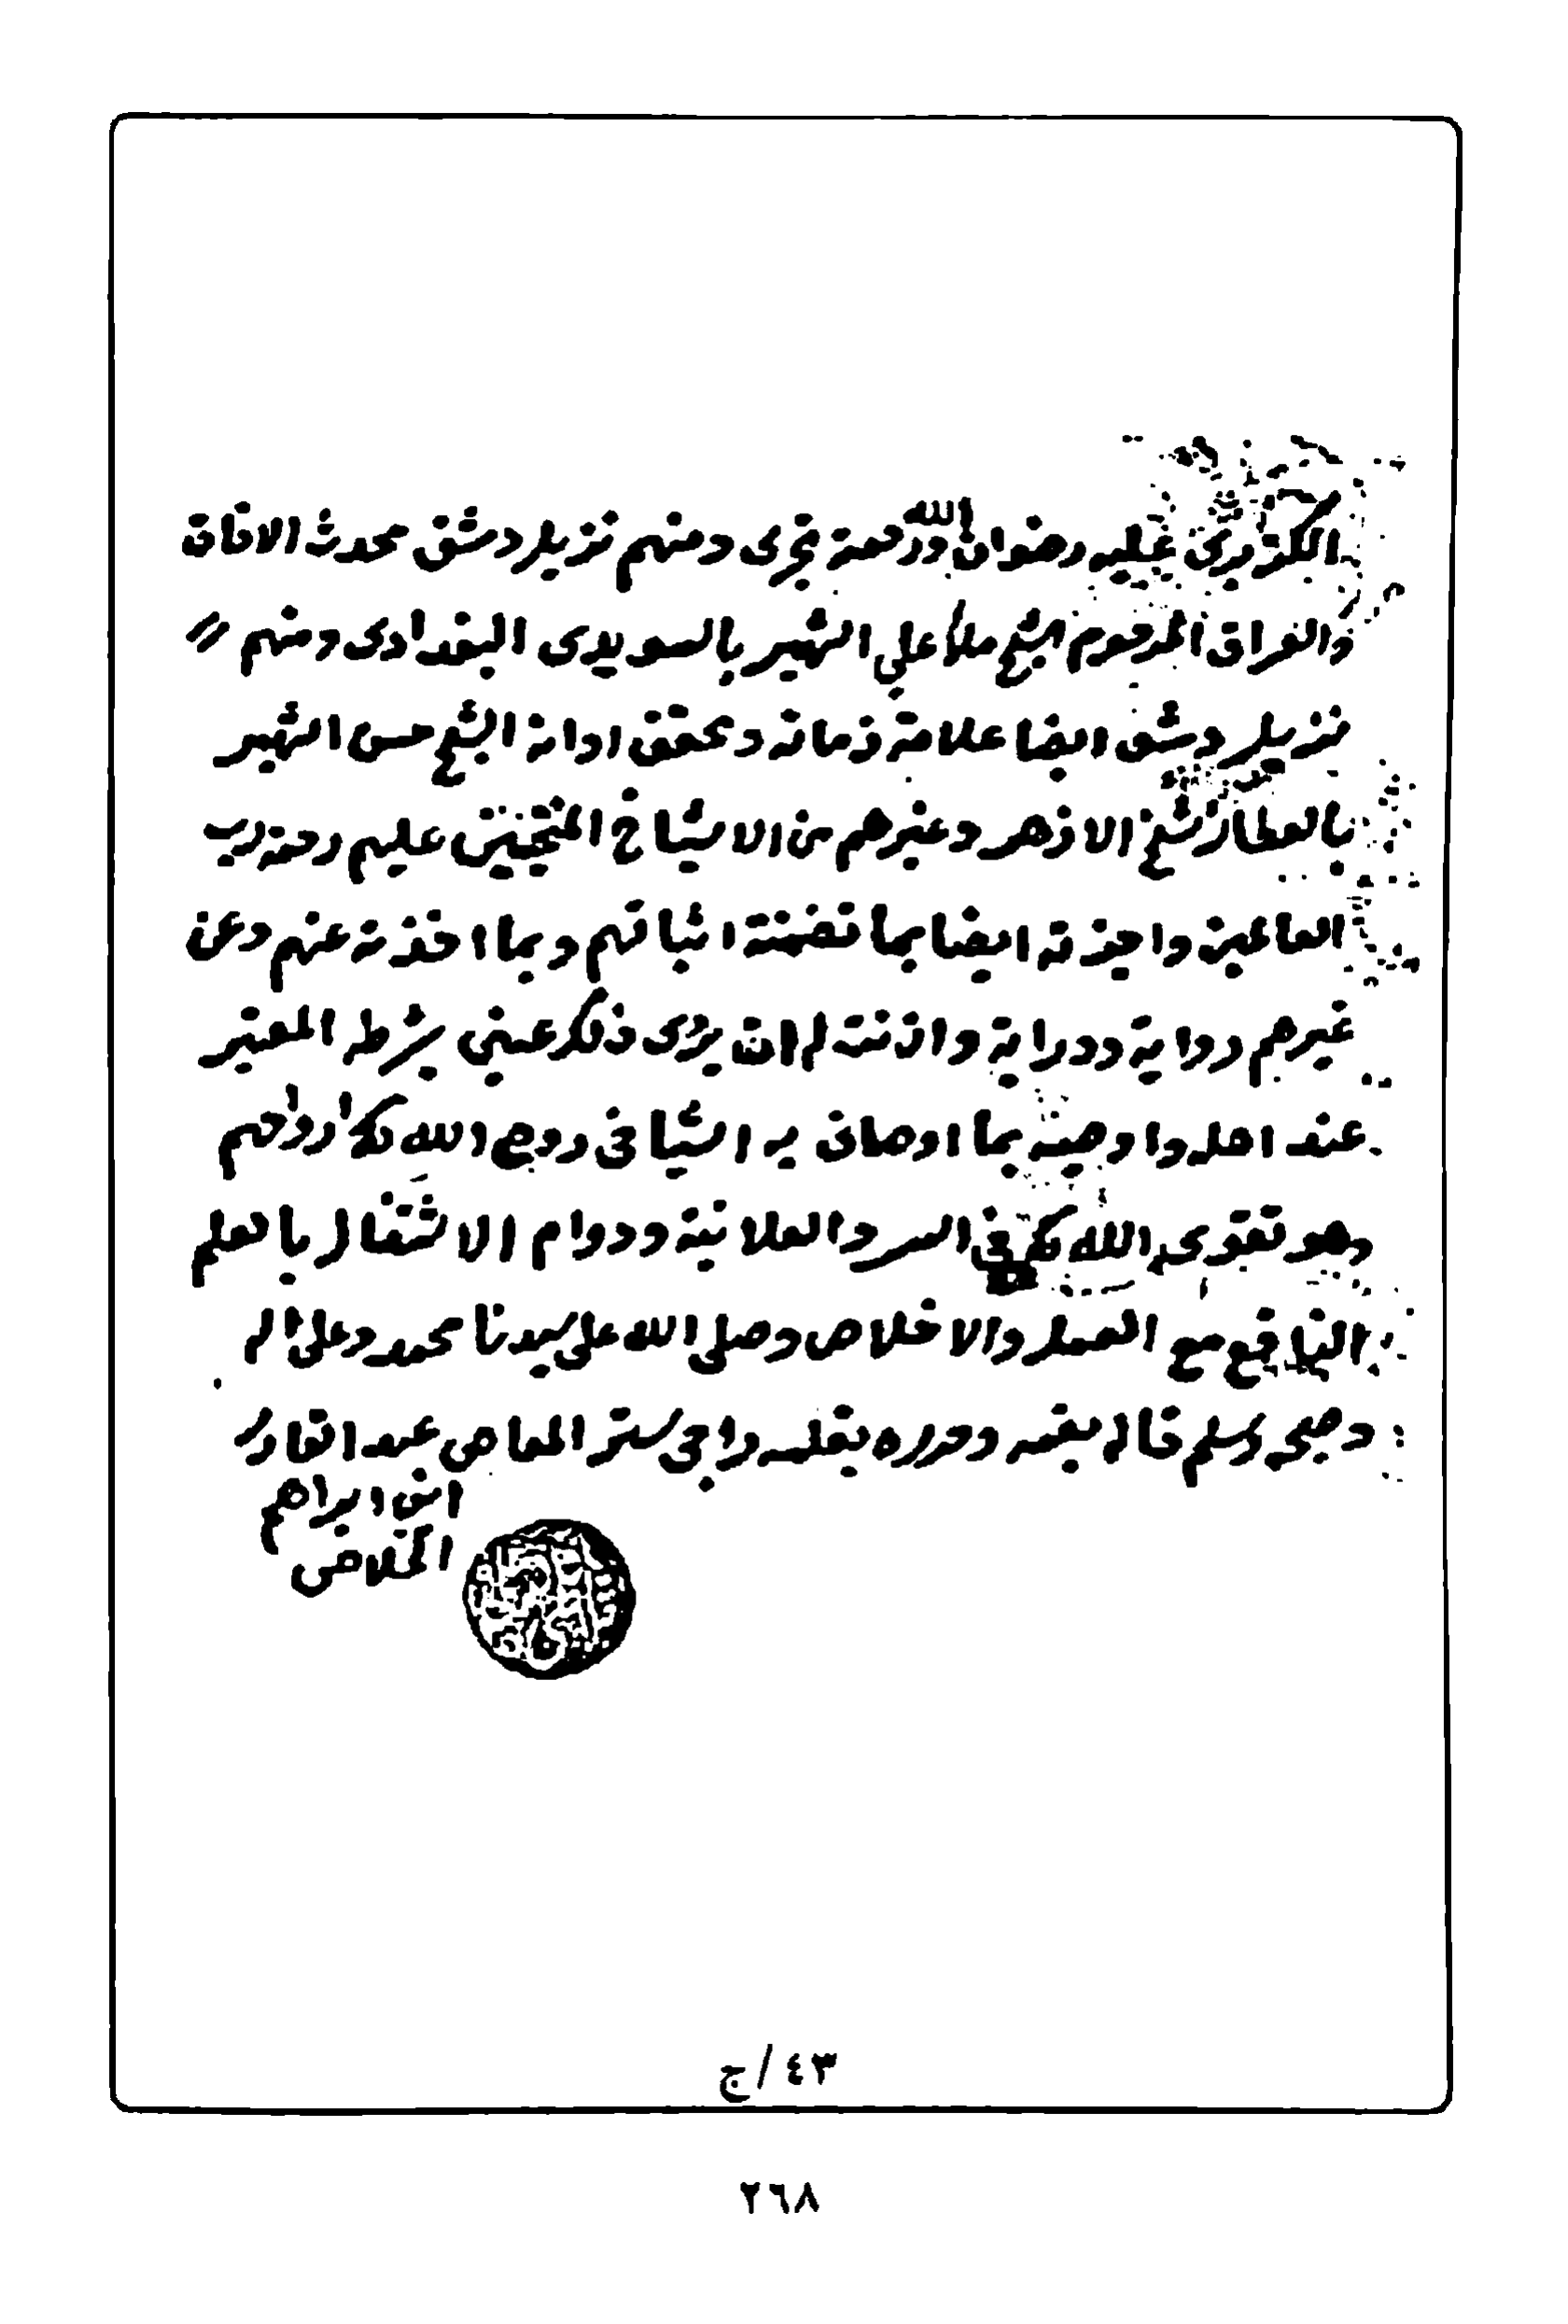 الكزبري عليه رضوان الله ورحمة تجرى ومنهم نزيل دمشق محدث الافاق
والعراق المرحوم الشيخ ملا علي الشهير بالسويدى البغدادى ومنهم
نزيل دمشق ايضا علامة زمانه ومحقق اوانه الشيخ حسن الشهير
بالعطار شيخ الازهر وغيرهم من الاشياخ عليهم رحمة رب
العالمين واجزته ايضا بما تضمنته اثباتهم وبما اخذته عنهم وعن
غيرهم رواية ودراية واذنت له ان يروى ذلك عني بشرطه المعتبر
عند اهله واوصيته بما اوصانى به اشياخى روح الله تعالى ارواحهم
وهو تقوى الله تعالى في السر والعلانية ودوام الاشتغال بالعلم
النافع مع العمل والاخلاص وصلى الله على سيدنا محمد وعلى اله
وصحبه وسلم قاله بفمه وحرره بقلمه راجي ستر المعاصى عبد القادر
ابن ابراهيم
الخلاصى
٤٣/ج
٢٦٨